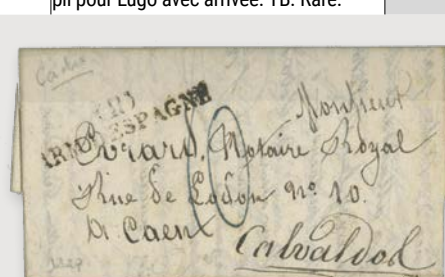 pli pour Lugo avec arrivée. TB. Rare.
Cadix
ARM D'ESPAGNE
Monsieur
Notaire Royal
Rue de n° 10.
A Caen
Calvaldos